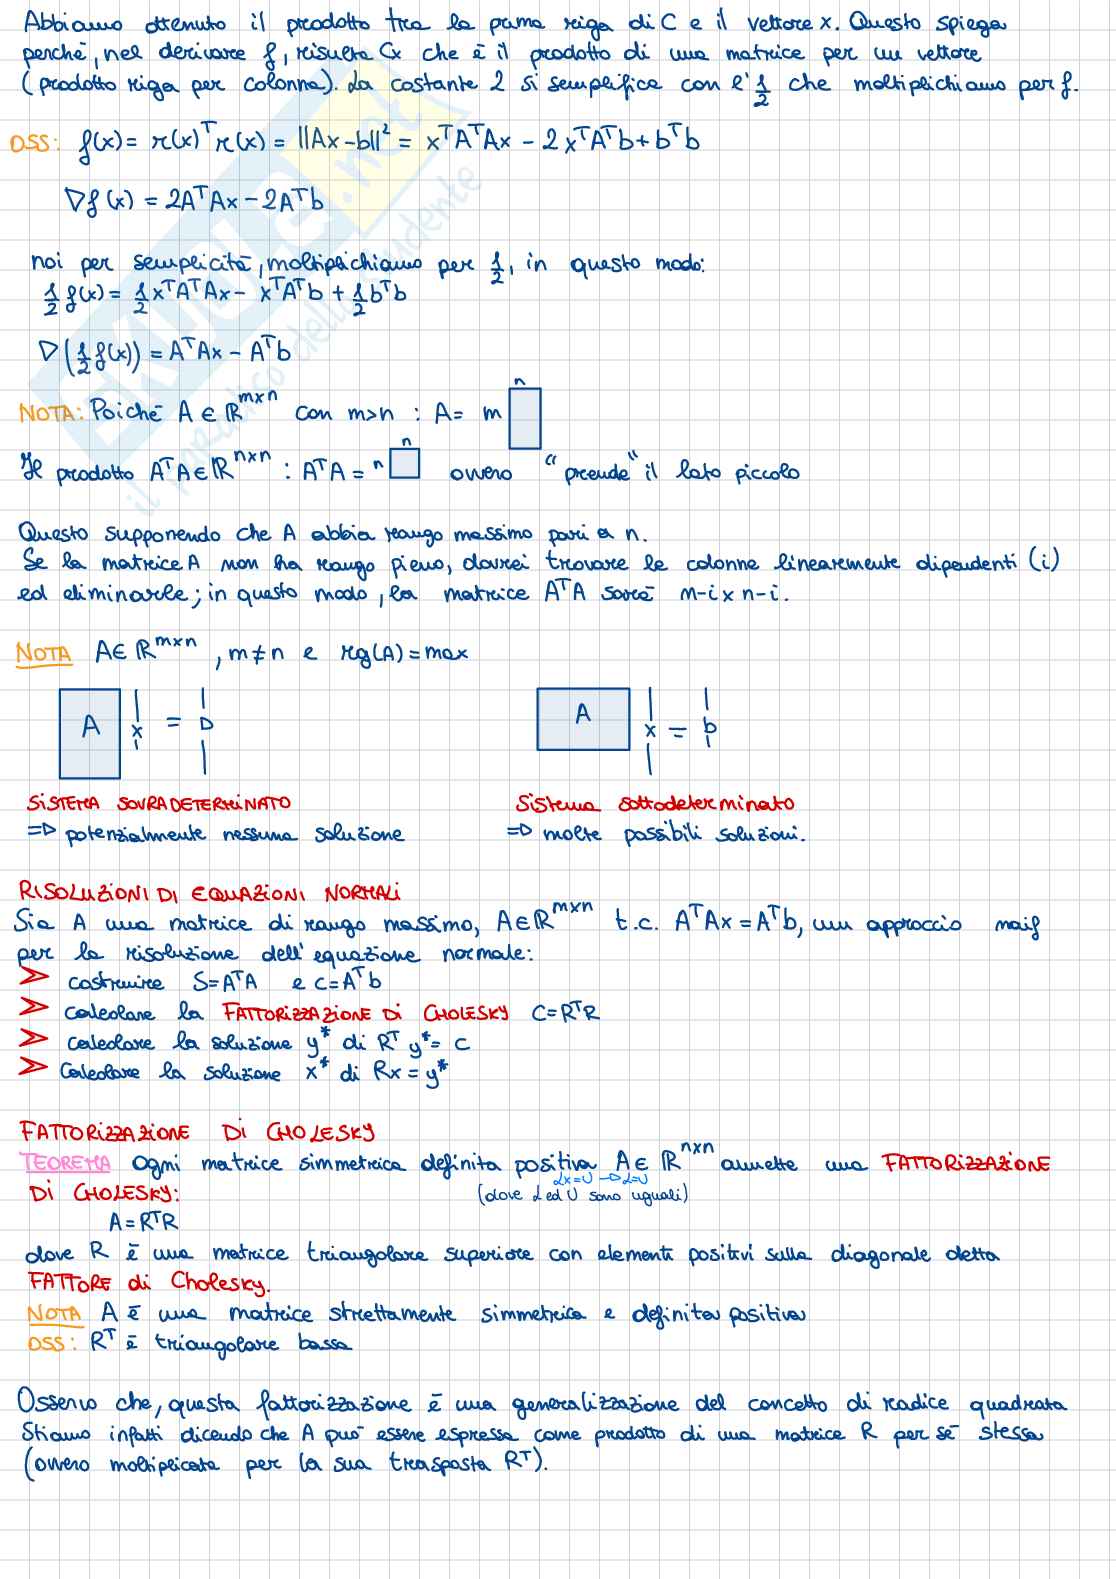 Abbiamo ottenuto il prodotto tra la prima riga di C e il vettore x. Questo spiega
perchè, nel derivare f, risulta Cx che è il prodotto di una matrice per un vettore
(prodotto riga per colonna). La costante 2 si semplifica con l'1/2 che moltiplichiamo per f.
OSS: f(x) = r(x)ᵀr(x) = ||Ax-b||² = xᵀAᵀAx - 2xᵀAᵀb + bᵀb
∇f(x) = 2AᵀAx - 2Aᵀb
noi per semplicità, moltiplichiamo per 1/2, in questo modo:
1/2 f(x) = 1/2 xᵀAᵀAx - xᵀAᵀb + 1/2 bᵀb
∇(1/2 f(x)) = AᵀAx - Aᵀb
n
NOTA: Poichè A ∈ ℝᵐˣⁿ con m>n : A= m
n
Il prodotto AᵀA ∈ ℝⁿˣⁿ : AᵀA = n ovvero "prende" il lato piccolo
Questo supponendo che A abbia rango massimo pari a n.
Se la matrice A non ha rango pieno, dovrei trovare le colonne linearmente dipendenti (i)
ed eliminarle; in questo modo, la matrice AᵀA sarà n-i x n-i.
NOTA A∈ ℝᵐˣⁿ, m≠n e rg(A)=max
A x = b A x = b
SISTEMA SOVRADETERMINATO Sistema sottodeterminato
=> potenzialmente nessuna soluzione => molte possibili soluzioni.
RISOLUZIONI DI EQUAZIONI NORMALI
Sia A una matrice di rango massimo, A∈ℝᵐˣⁿ t.c. AᵀAx = Aᵀb, un approccio naif
per la risoluzione dell'equazione normale:
➢ costruire S=AᵀA e c=Aᵀb
➢ calcolare la FATTORIZZAZIONE DI CHOLESKY C=RᵀR
➢ calcolare la soluzione y* di Rᵀ y* = c
➢ Calcolare la soluzione x* di Rx = y*
FATTORIZZAZIONE DI CHOLESKY
TEOREMA Ogni matrice simmetrica definita positiva A∈ ℝⁿˣⁿ ammette una FATTORIZZAZIONE
Lx=U -> L=U
DI CHOLESKY: (dove L ed U sono uguali)
A=RᵀR
dove R è una matrice triangolare superiore con elementi positivi sulla diagonale detta
FATTORE di Cholesky.
NOTA A è una matrice strettamente simmetrica e definita positiva
OSS: Rᵀ è triangolare bassa
Osservo che, questa fattorizzazione è una generalizzazione del concetto di radice quadrata
Stiamo infatti dicendo che A può essere espressa come prodotto di una matrice R per sè stessa
(ovvero moltiplicata per la sua trasposta Rᵀ).